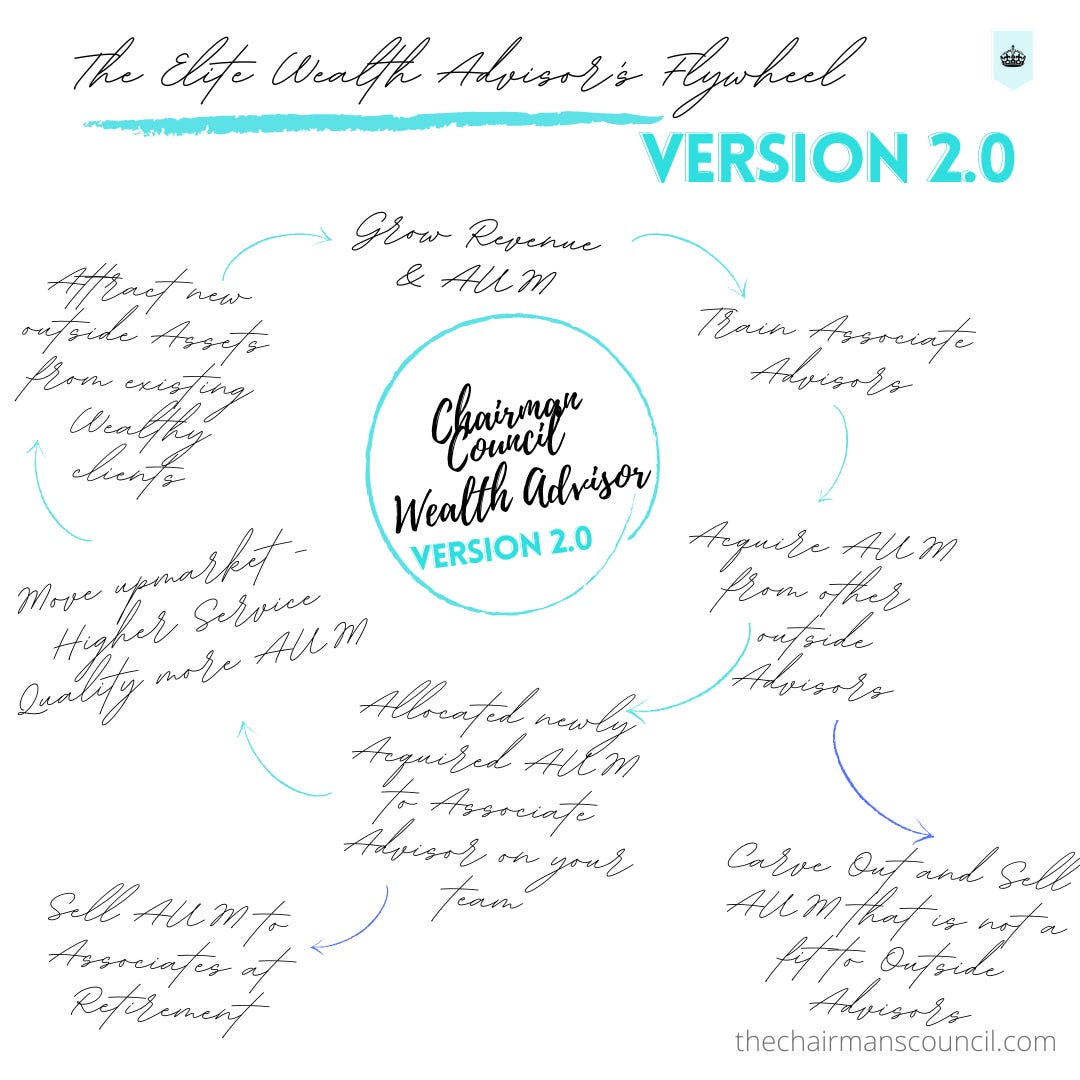 The Elite Wealth Advisor's Flywheel
VERSION 2.0
Grow Revenue
& AUM
Train Associate
Advisors
Acquire AUM
from other
outside
Advisors
Carve Out and Sell
AUM that is not a
fit to Outside
Advisors
Allocated newly
Acquired AUM
to Associate
Advisor on your
team
Sell AUM to
Associates at
Retirement
Move upmarket -
Higher Service
Quality more AUM
Attract new
outside Assets
from existing
Wealthy
clients
Chairman
Council
Wealth Advisor
VERSION 2.0
thechairmanscouncil.com